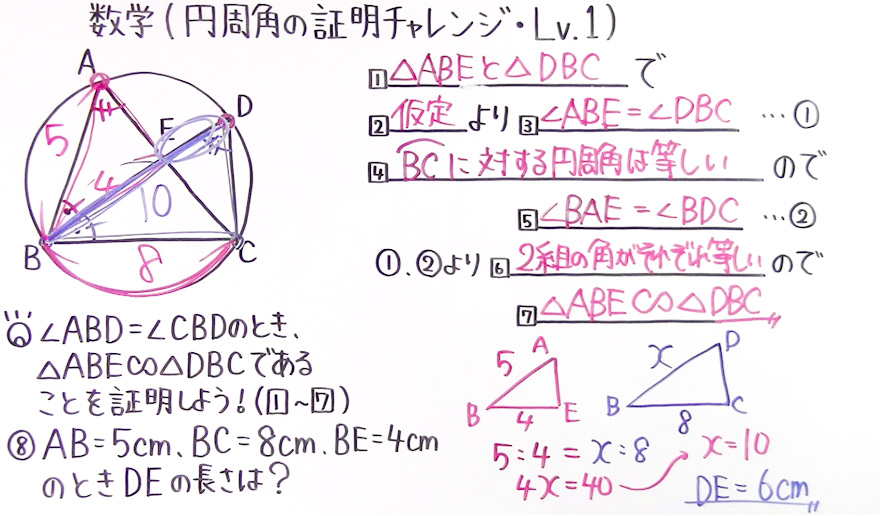 数学(円周角の証明チャレンジ・Lv.1)
A
D
E
B
C
5
4
10
8
1 △ABEと△DBC で
2 仮定 より 3 ∠ABE=∠DBC …①
4 BCに対する円周角は等しい ので
5 ∠BAE=∠BDC …②
①、②より 6 2組の角がそれぞれ等しい ので
7 △ABE∽△DBC
∠ABD=∠CBDのとき、
△ABE∽△DBCである
ことを証明しよう!(1~7)
⑧AB=5cm、BC=8cm、BE=4cm
のときDEの長さは?
5
A
B
4
E
x
D
B
8
C
5:4=x:8
4x=40
x=10
DE=6cm